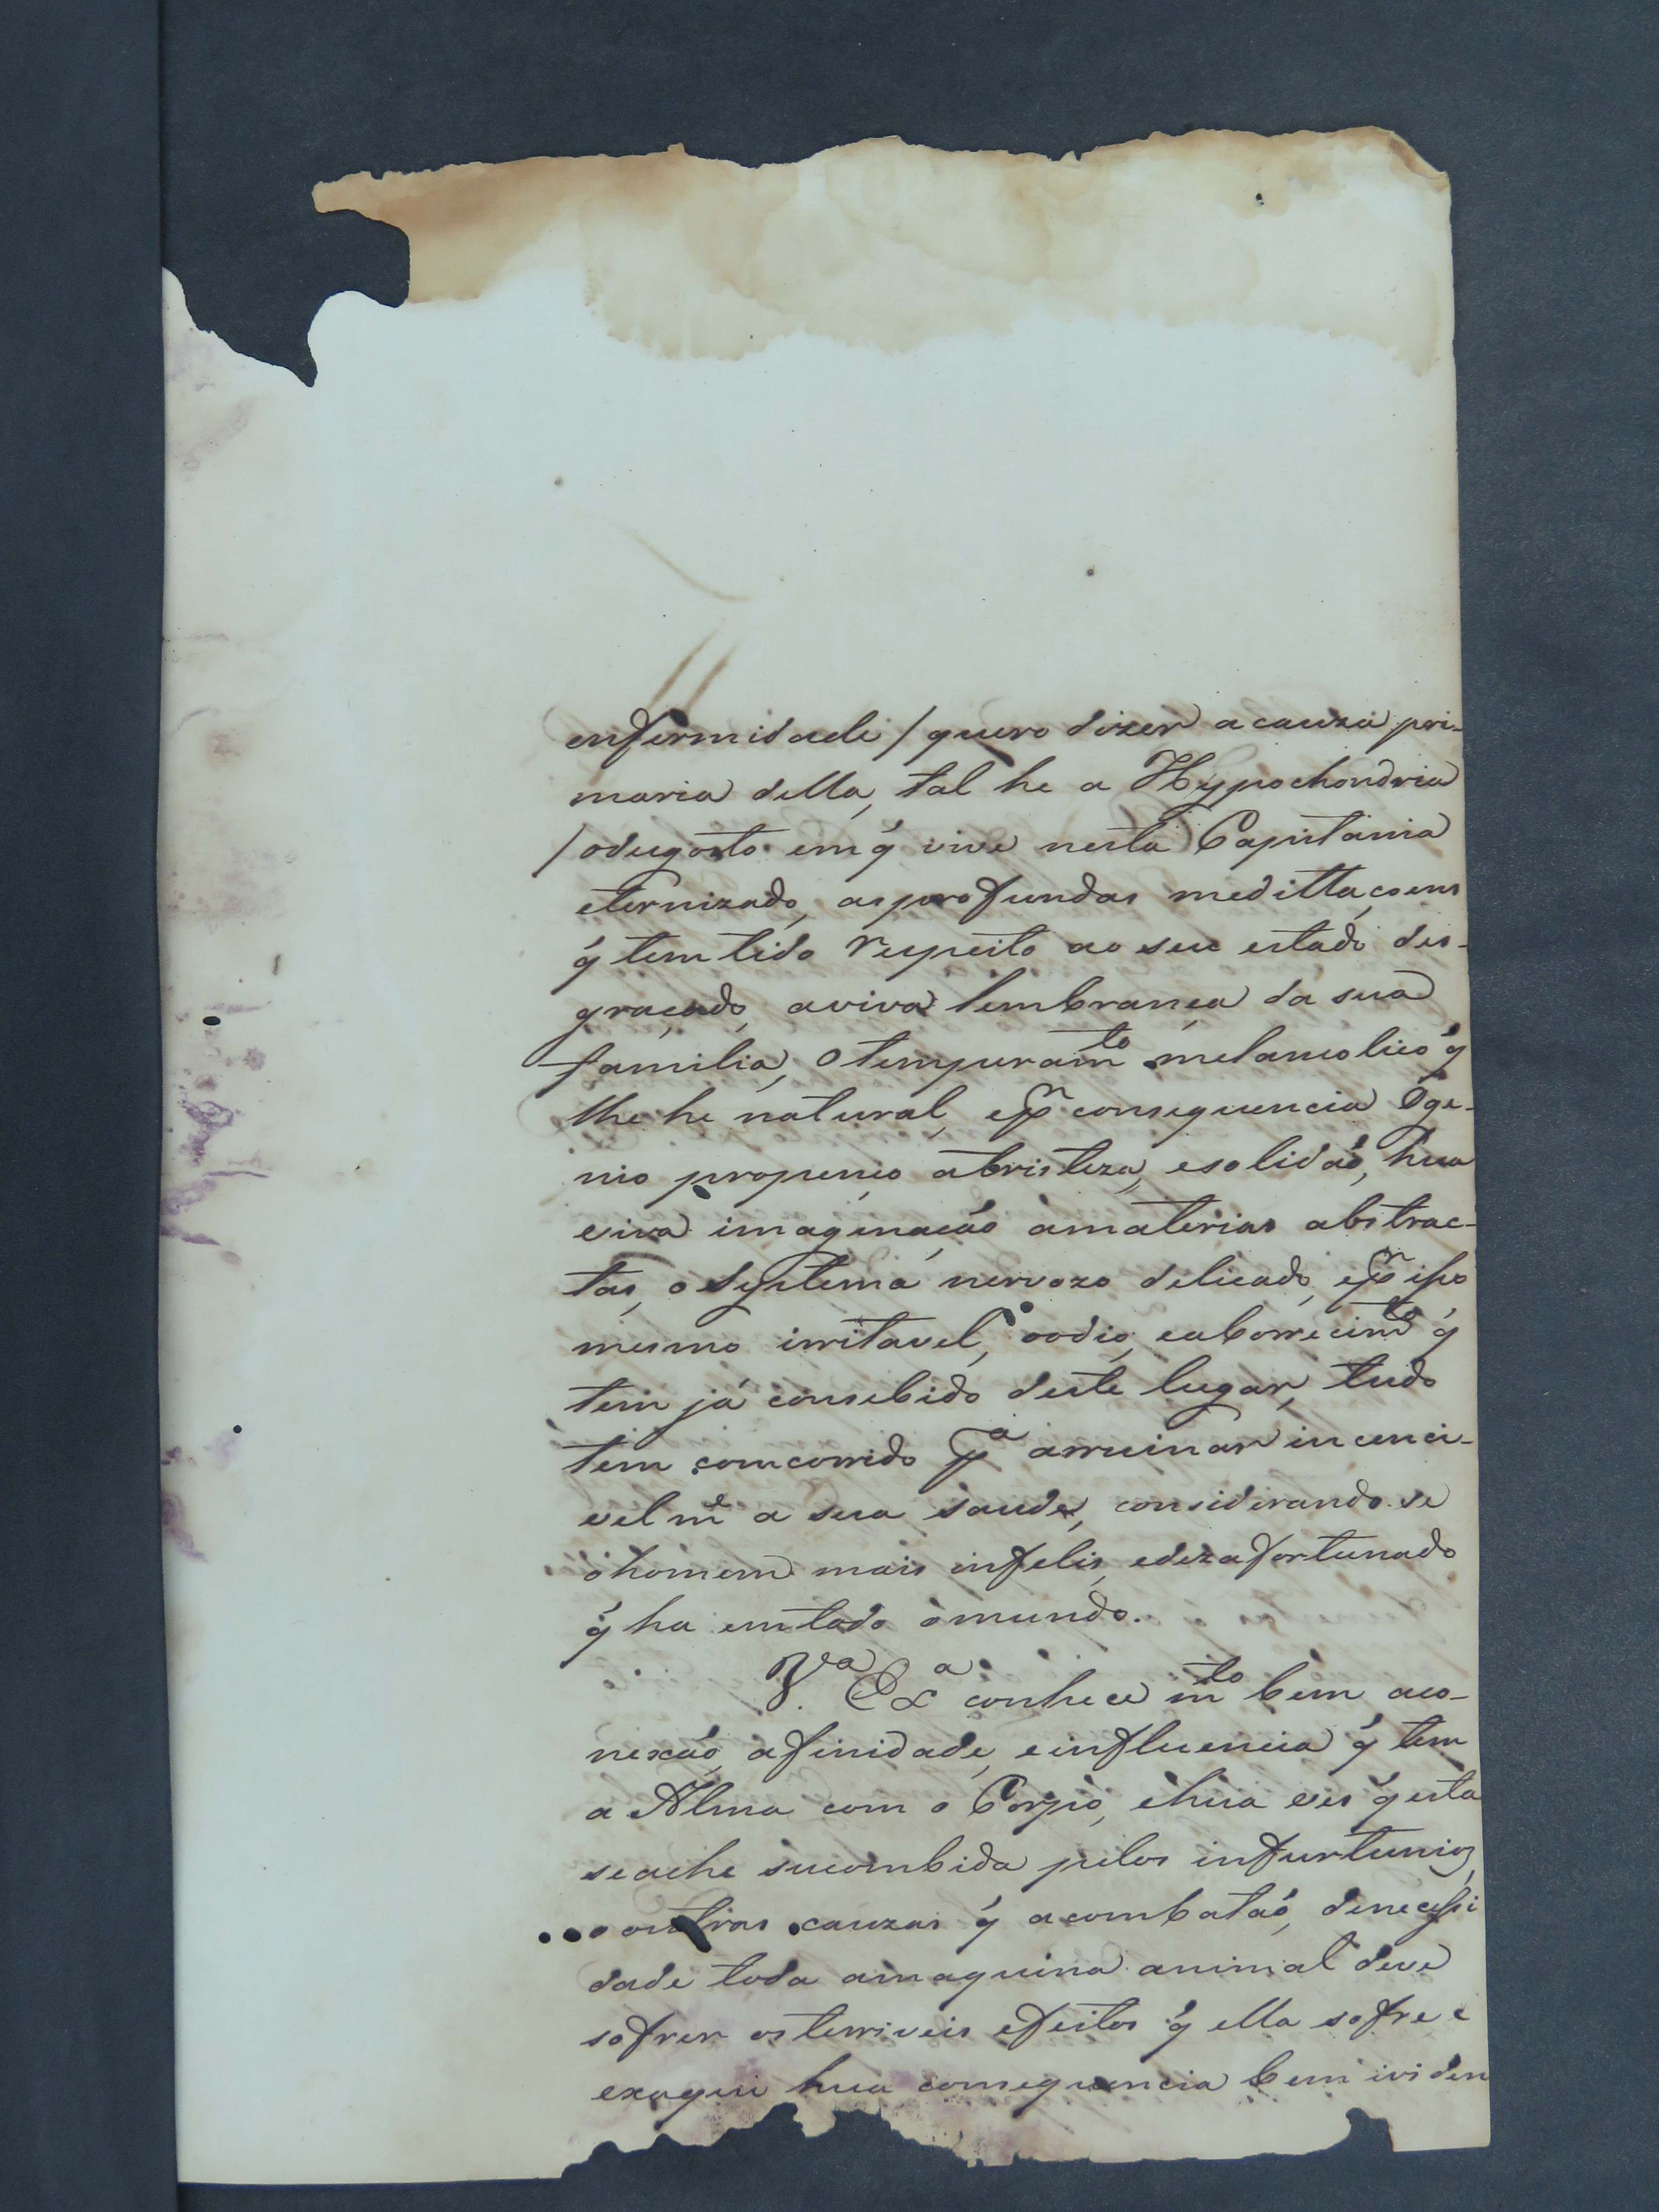 enfermidade / quero dizer a cauza pri-
maria della, tal he a Hypochondria
/ odesgosto em q̃ vive nesta Capitania
eternizado, as profundas medittaçoens
q̃ tem tido respeito ao seu estado des-
graçado, aviva lembrança da sua
familia, o temperamto melancolico q̃
lhe he natural, epr consequencia Oge-
nio propenço atristeza, esolidaõ, hua
viva imaginaçaõ amaterias abstrac-
tas, o Systema nervozo delicado, epr isso
mesmo irritavel, oodio, eaborrecimto q̃
tem já consebido deste lugar, tudo
tem comcorrido pa arruinar incenci-
velme a sua saude, considerando-se
ohomem mais infelis, edezafortunado
q̃ ha em todo omundo.
Va Exa conhece mto bem aco-
nexaõ, afinidade, einfluencia q̃ tem
a Alma com o Corpo, ehua ves q̃ esta
seache sucombida pelos infurtunios,
o outras cauzas q̃ acombataõ, denecessi
dade toda amaquina animal deve
sofrer osterriveis efeitos q̃ ella sofre e
exaqui hua consequencia bem eviden